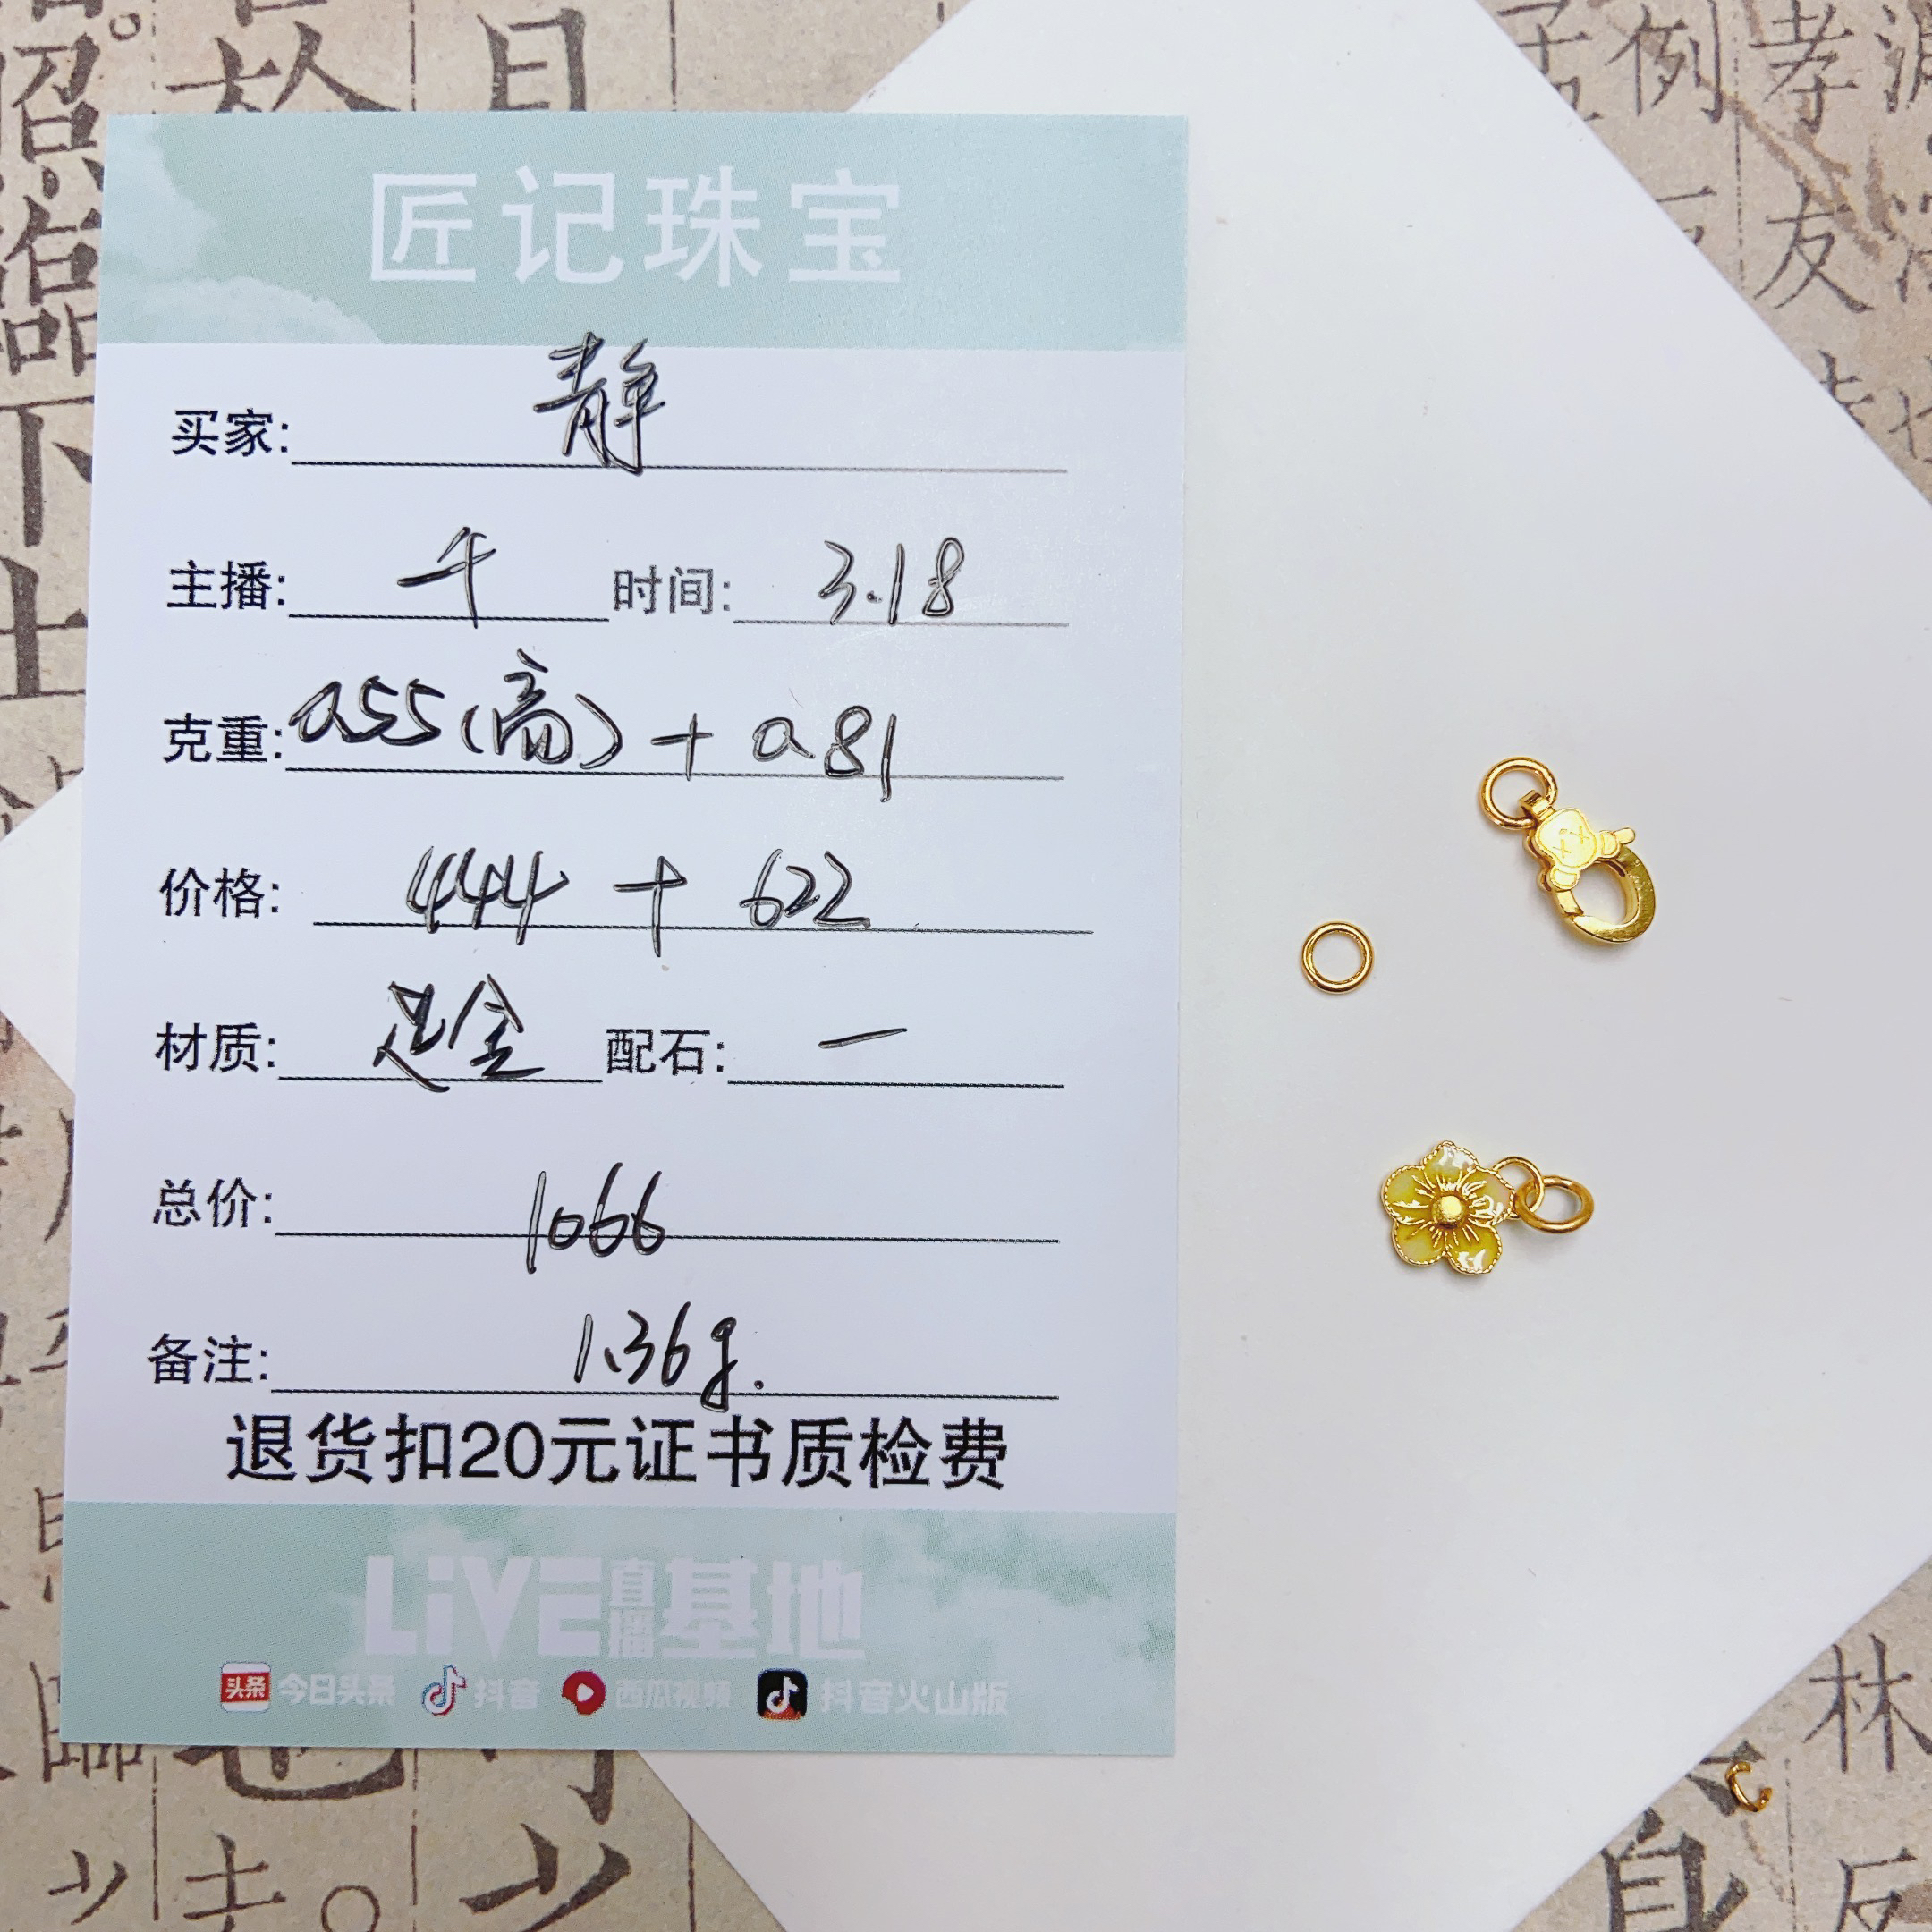 匠记珠宝
买家: 静
主播: 千 时间: 3.18
克重: 0.55(高) + 0.81
价格: 444 + 622
材质: 足金 配石: 一
总价: 1066
备注: 1.36g.
退货扣20元证书质检费
LiVE直播基地
头条 今日头条 抖音 西瓜视频 抖音火山版